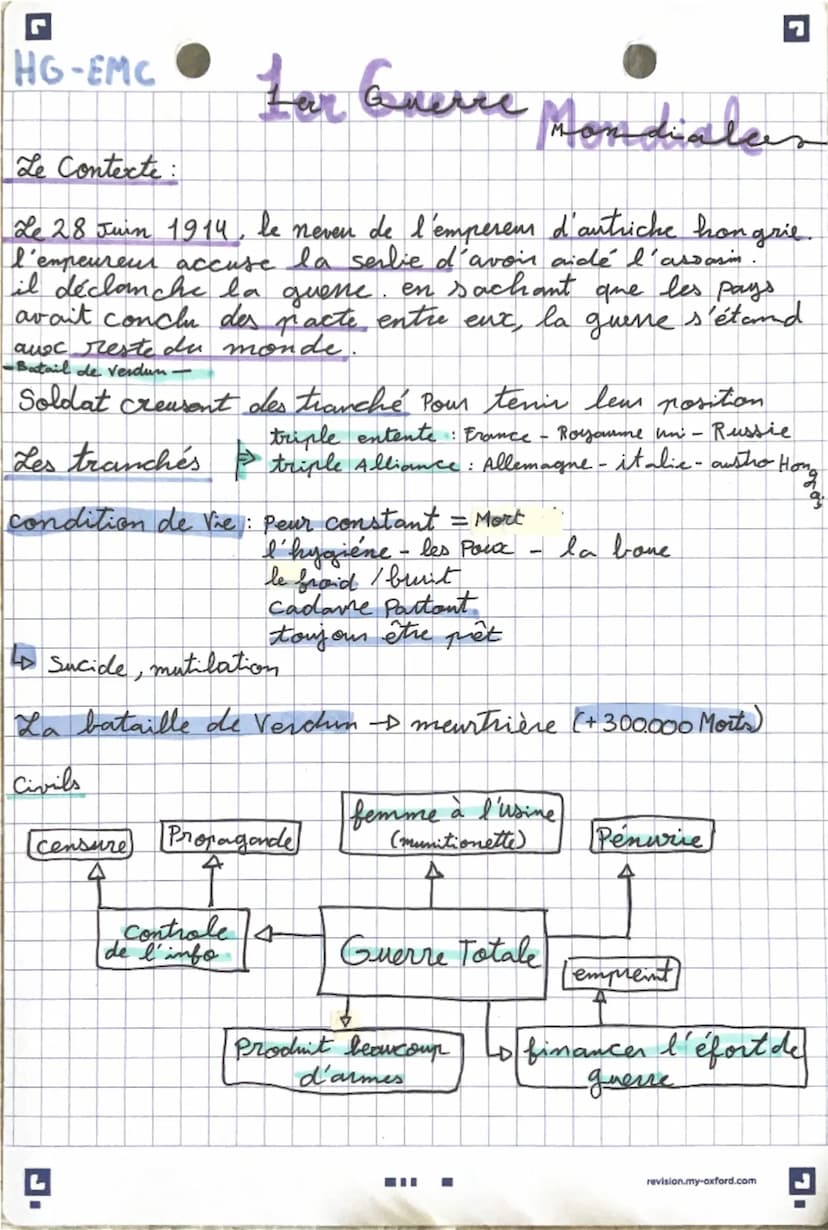 HG-EMC
1er Guerre
Mondiales
Le Contexte :
Le 28 Juin 1914, le neveu de l'empereur d'autriche hongrie.
l'empeureur accuse la serbie d'avoir aidé l'assasin.
il déclanche la guerre. en sachant que les pays
avait conclu des pacte entre eux, la guerre s'étand
aux reste du monde.
- Batail de Verdun -
Soldat creusent des tranché Pour tenir leur position
triple entente : France - Royaume uni - Russie
Les tranchés
triple Alliance : Allemagne - italie - austro Hongr
condition de Vie : Peur constant = Mort
l'hygiéne - les Poux - la boue
le froid / bruit
Cadavre Partout.
toujour être prêt
↳ Sucide, mutilation
La bataille de Verdun → meurtrière (+300.000 Morts)
Civils
femme à l'usine
(munitionette)
censure
Propagande
Pénurie
controle
de l'info
Guerre Totale
empreint
Produit beaucoup
d'armes
financer l'éfort de
guerre
revision.my-oxford.com